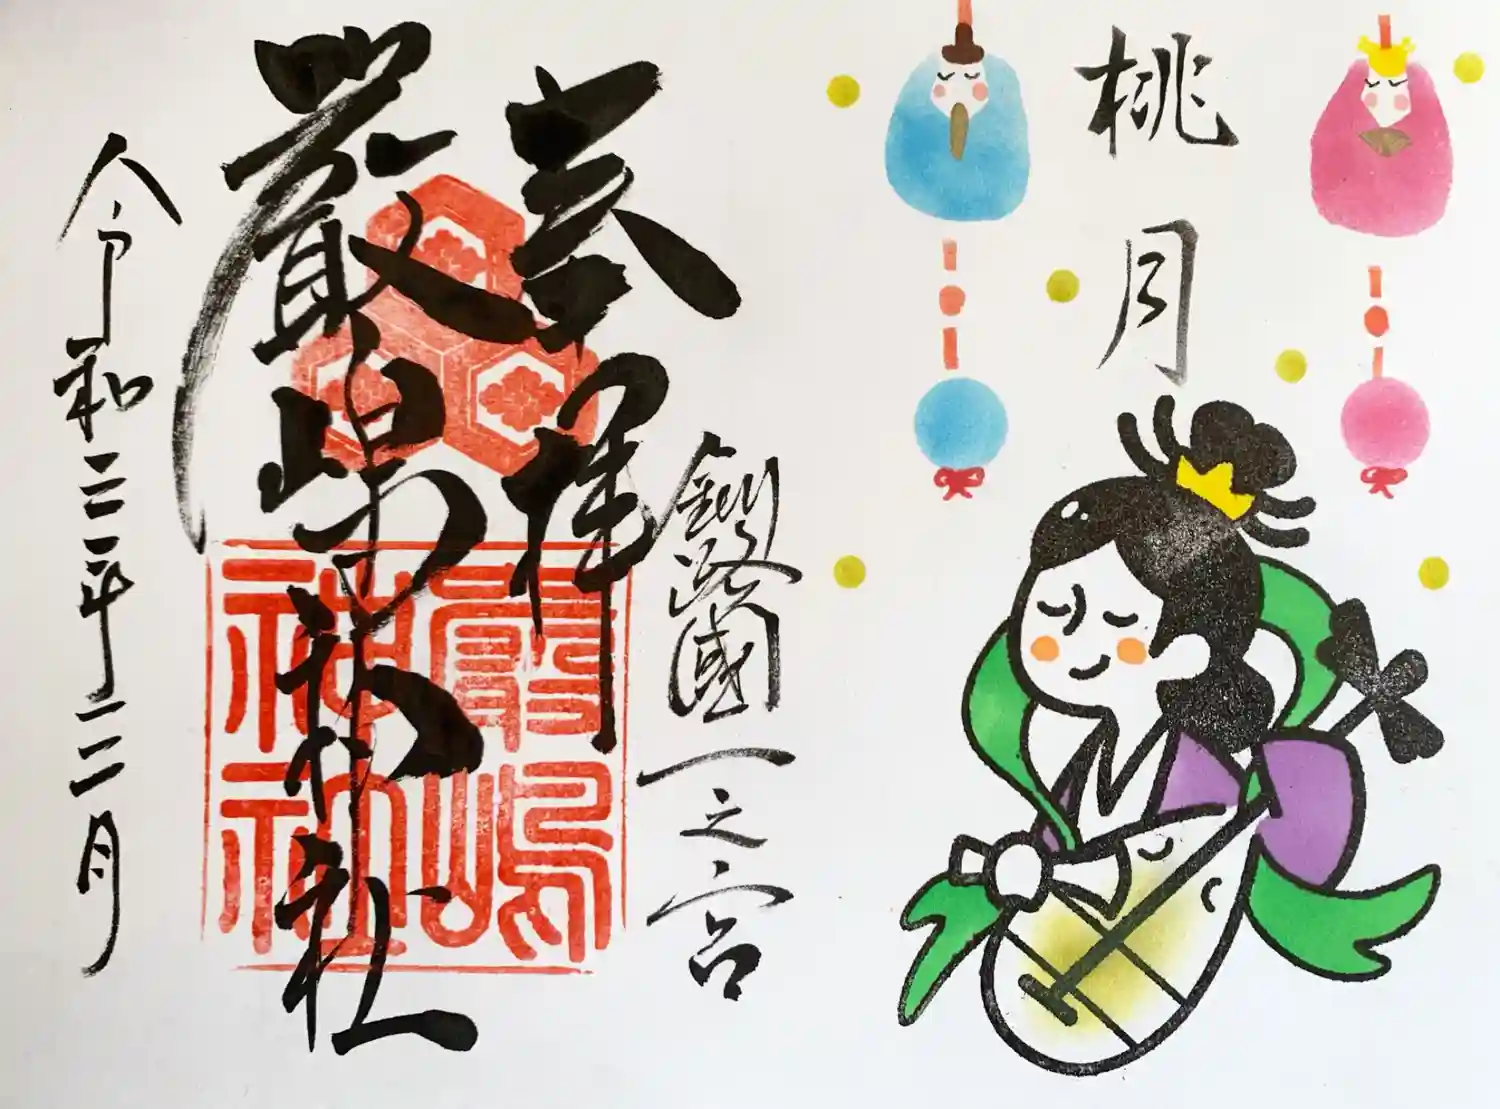 桃月
釧路國一之宮
奉拝
厳島神社
嚴嶋
神社
令和三年三月